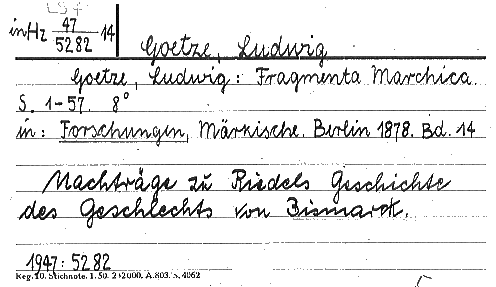 in Hz 47/5282 14
Goetze, Ludwig
Goetze, Ludwig: Fragmenta Marchica.
S. 1-57. 8°
in: Forschungen, Märkische. Berlin 1878. Bd. 14
Nachträge zu Riedels Geschichte
des Geschlechts von Bismarck.
1947: 5282
Reg. 10. Stichnote. 1. 50. 2/2000. A. 803. S. 4062